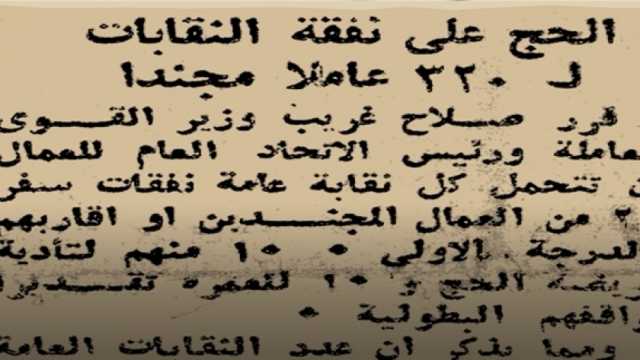 الحج على نفقة النقابات
لـ ٣٢٠ عاملا مجندا
قرر صلاح غريب وزير القوى
لعاملة ورئيس الاتحاد العام للعمال
ن تتحمل كل نقابة عامة نفقات سفر
٢ من العمال المجندين او اقاربهم
لدرجة الاولى ٠ ١٠ منهم لتأدية
ريضة الحج و ١٠ للعمره تقديرا
واقفهم البطولية ٠
ومما يذكر ان عدد النقابات العامة